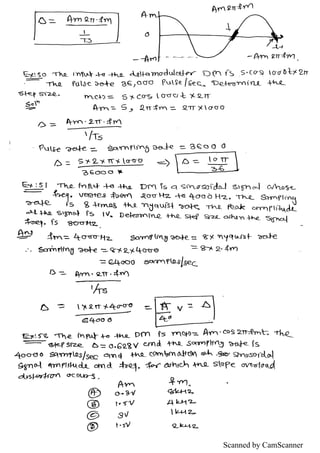 Δ = Am 2π·fm / 1/TS
Am
Am2π fm
0
-Am
-Am 2π fm
Ex:50 The input to the deltamodulator DM is 5·cos 1000t×2π
The Pulse rate 36,000 Pulse/sec, Determine the
step size.
Sol m(t) = 5×cos 1000t×2π
Am = 5, 2π fm = 2π×1000
Δ = Am·2π·fm / 1/TS
Pulse rate = Sampling rate = 36000
Δ = 5×2×π×1000 / 36000 ⇒ Δ = 10π / 36
Ex:51 The Input to the DM is a sinusoidal signal whose
freq. varies from 200Hz to 4000Hz, The Sampling
rate is 8 times the nyquist rate, The Peak amplitude
of the Signal is 1V. Determine the step size when the Signal
freq. is 800Hz.
Ans fm = 4000Hz Sampling rate = 8× nyquist rate
∴ Sampling rate = 8×2×4000 = 8×2·fm
= 64000 samples/sec
Δ = Am·2π·fm / 1/TS
Δ = 1×2π×4000 / 64000 = π / 40 V = Δ
Ex:52 The input to the DM is m(t) = Am·cos2πfmt. The
step size Δ = 0.628V and the sampling rate is
40000 samples/sec and the combination of sinosoidal
Signal amplitude and freq. for which the slope overload
distortion occurs.
Am fm
(A) 0.3V 8kHz
(B) 1.5V 4kHz
(C) 3V 1kHz
(D) 1.5V 2kHz
Scanned by CamScanner